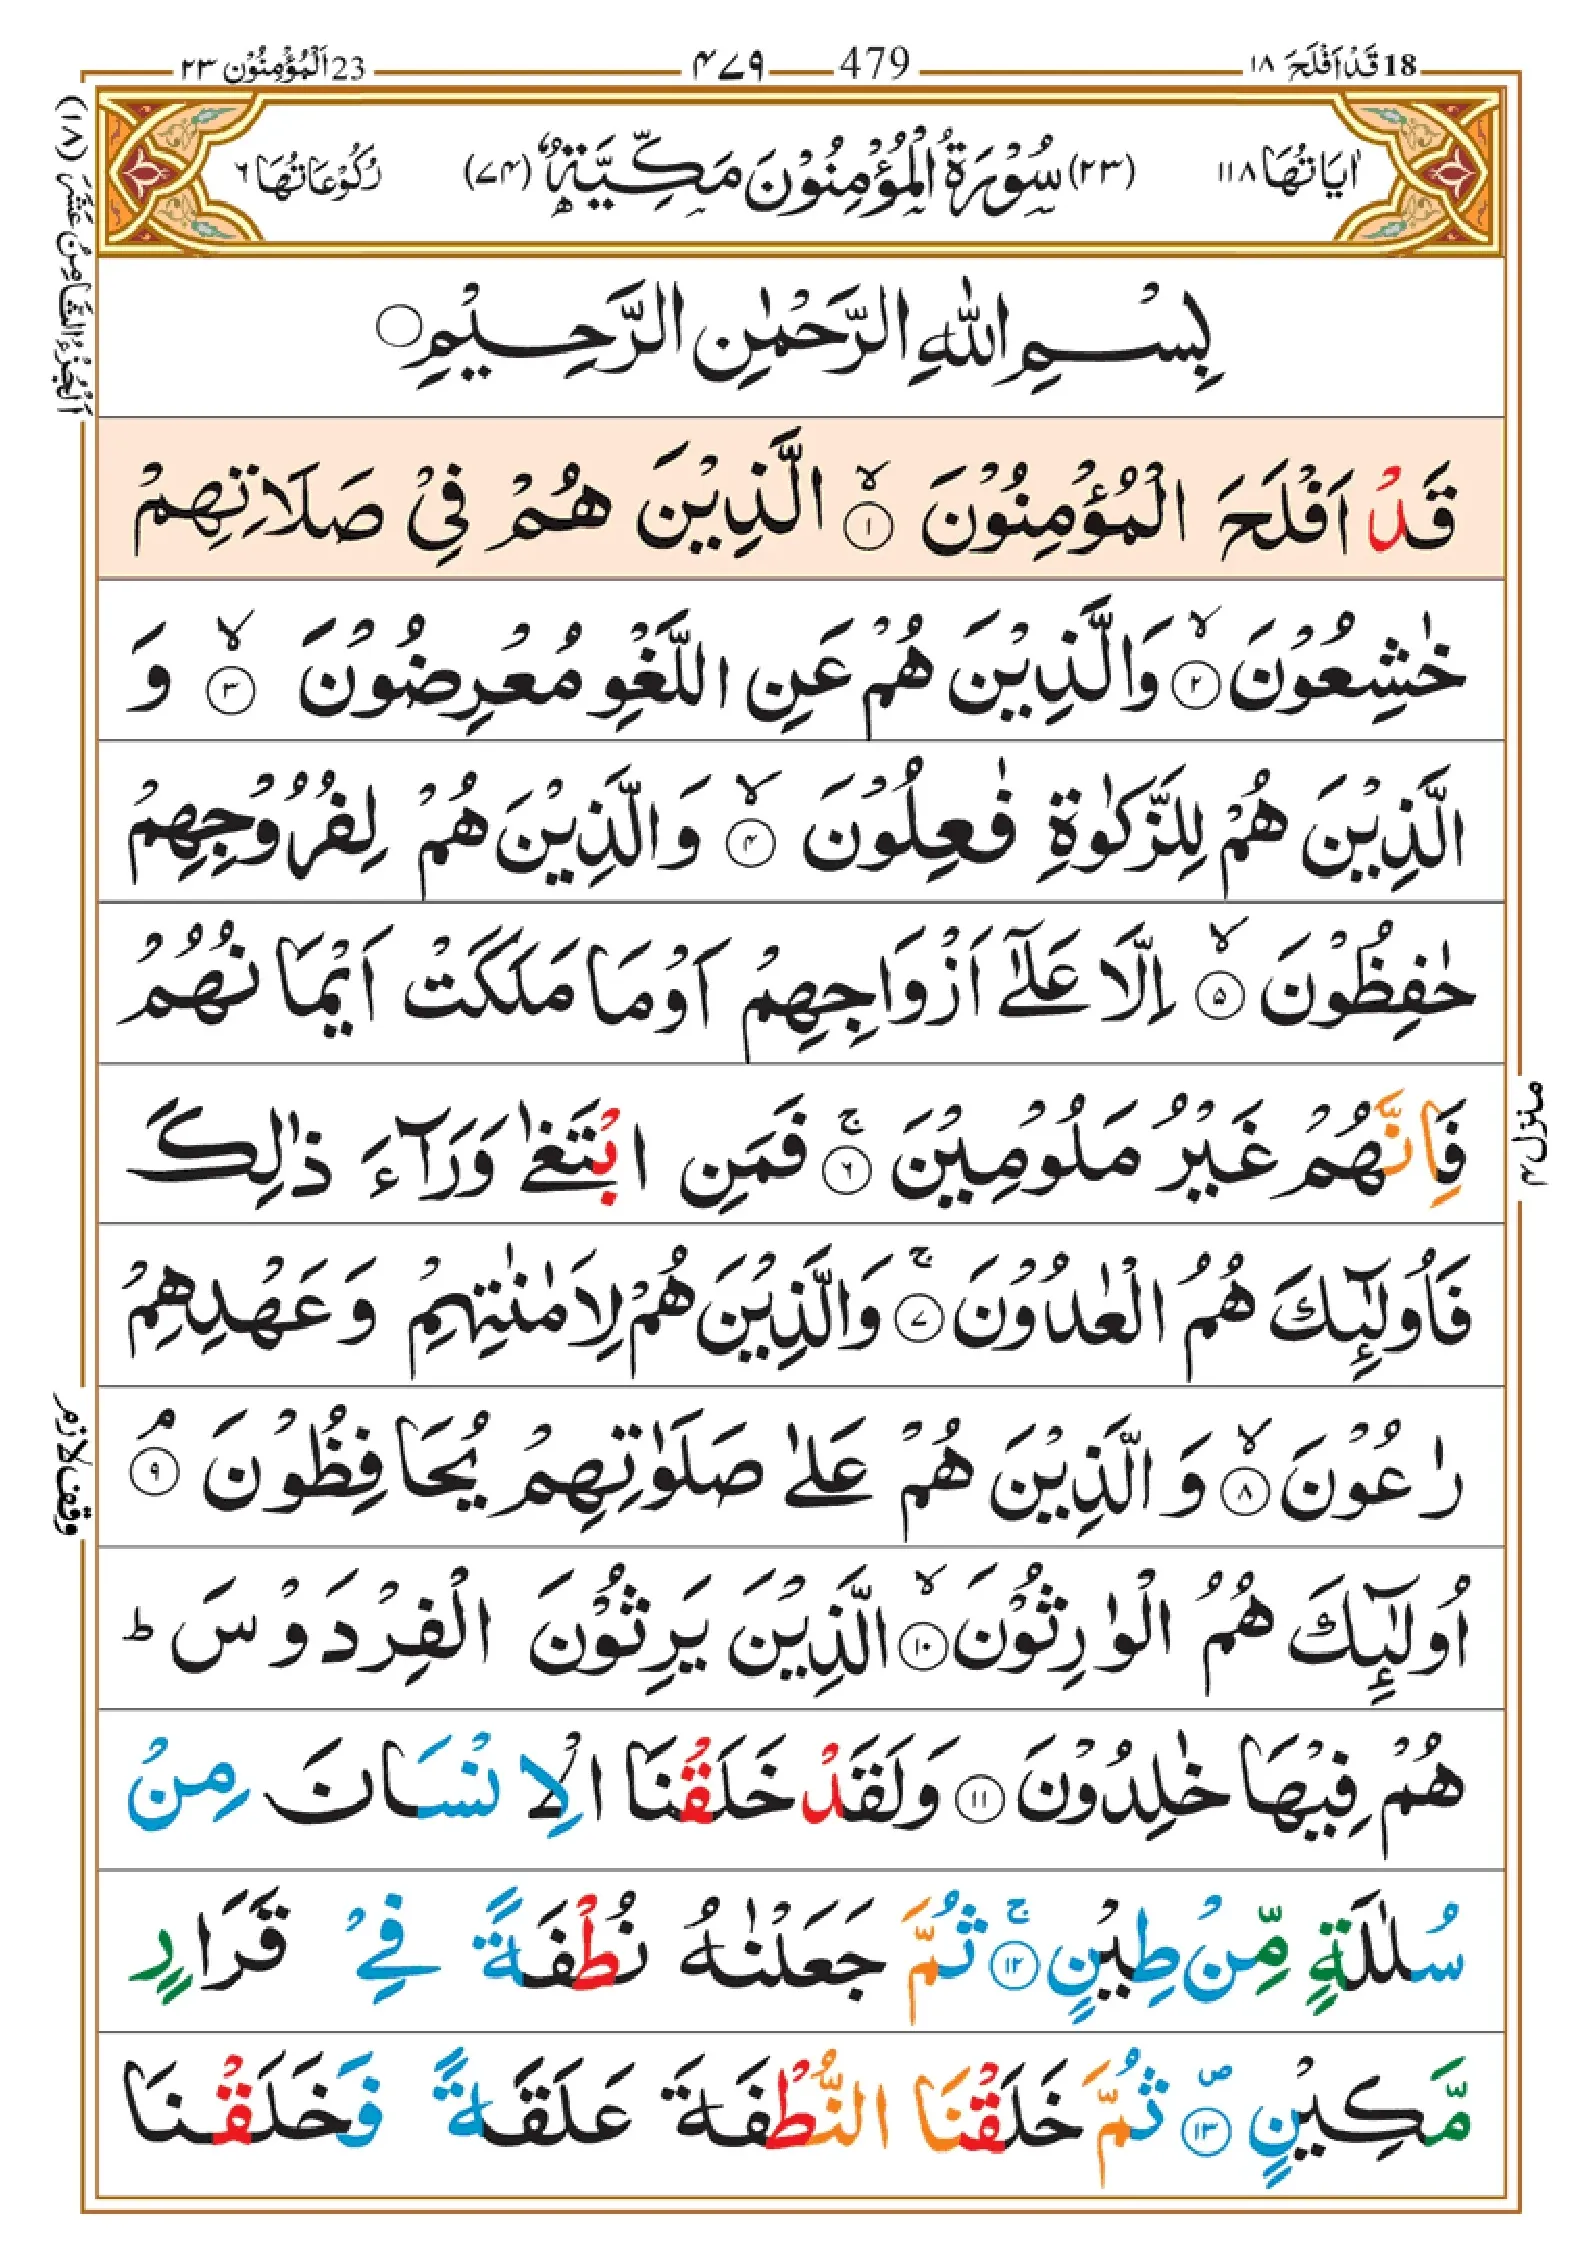 18 قَدْ اَفْلَحَ ۱۸
479 ۴۷۹
23 اَلْمُؤْمِنُوْن ۲۳
اٰيَاتُهَا ۱۱۸ (۲۳) سُوْرَةُ الْمُؤْمِنُوْنَ مَكِّيَّةٌ (۷۴) رُكُوْعَاتُهَا ۶
بِسْمِ اللّٰهِ الرَّحْمٰنِ الرَّحِيْمِ ۝
قَدْ اَفْلَحَ الْمُؤْمِنُوْنَ ۙ‏﴿۱﴾ الَّذِيْنَ هُمْ فِيْ صَلَاتِهِمْ
خٰشِعُوْنَ ۙ‏﴿۲﴾ وَالَّذِيْنَ هُمْ عَنِ اللَّغْوِ مُعْرِضُوْنَ ۙ‏﴿۳﴾ وَ
الَّذِيْنَ هُمْ لِلزَّكٰوةِ فٰعِلُوْنَ ۙ‏﴿۴﴾ وَالَّذِيْنَ هُمْ لِفُرُوْجِهِمْ
حٰفِظُوْنَ ۙ‏﴿۵﴾ اِلَّا عَلٰٓى اَزْوَاجِهِمْ اَوْ مَا مَلَكَتْ اَيْمَانُهُمْ
فَاِنَّهُمْ غَيْرُ مَلُوْمِيْنَ ۚ‏﴿۶﴾ فَمَنِ ابْتَغٰى وَرَآءَ ذٰلِكَ
فَاُولٰٓئِكَ هُمُ الْعٰدُوْنَ ۚ‏﴿۷﴾ وَالَّذِيْنَ هُمْ لِاَمٰنٰتِهِمْ وَعَهْدِهِمْ
رٰعُوْنَ ۙ‏﴿۸﴾ وَالَّذِيْنَ هُمْ عَلٰى صَلَوٰتِهِمْ يُحَافِظُوْنَ ۘ‏﴿۹﴾
اُولٰٓئِكَ هُمُ الْوٰرِثُوْنَ ۙ‏﴿۱۰﴾ الَّذِيْنَ يَرِثُوْنَ الْفِرْدَوْسَ ؕ
هُمْ فِيْهَا خٰلِدُوْنَ ﴿۱۱﴾ وَلَقَدْ خَلَقْنَا الْاِنْسَانَ مِنْ
سُلٰلَةٍ مِّنْ طِيْنٍ ۚ‏﴿۱۲﴾ ثُمَّ جَعَلْنٰهُ نُطْفَةً فِيْ قَرَارٍ
مَّكِيْنٍ ۖ‏﴿۱۳﴾ ثُمَّ خَلَقْنَا النُّطْفَةَ عَلَقَةً فَخَلَقْنَا
اَلْجُزْءُ الثَّامِنُ عَشَرَ (۱۸)
منزل ۴
وقف لازم